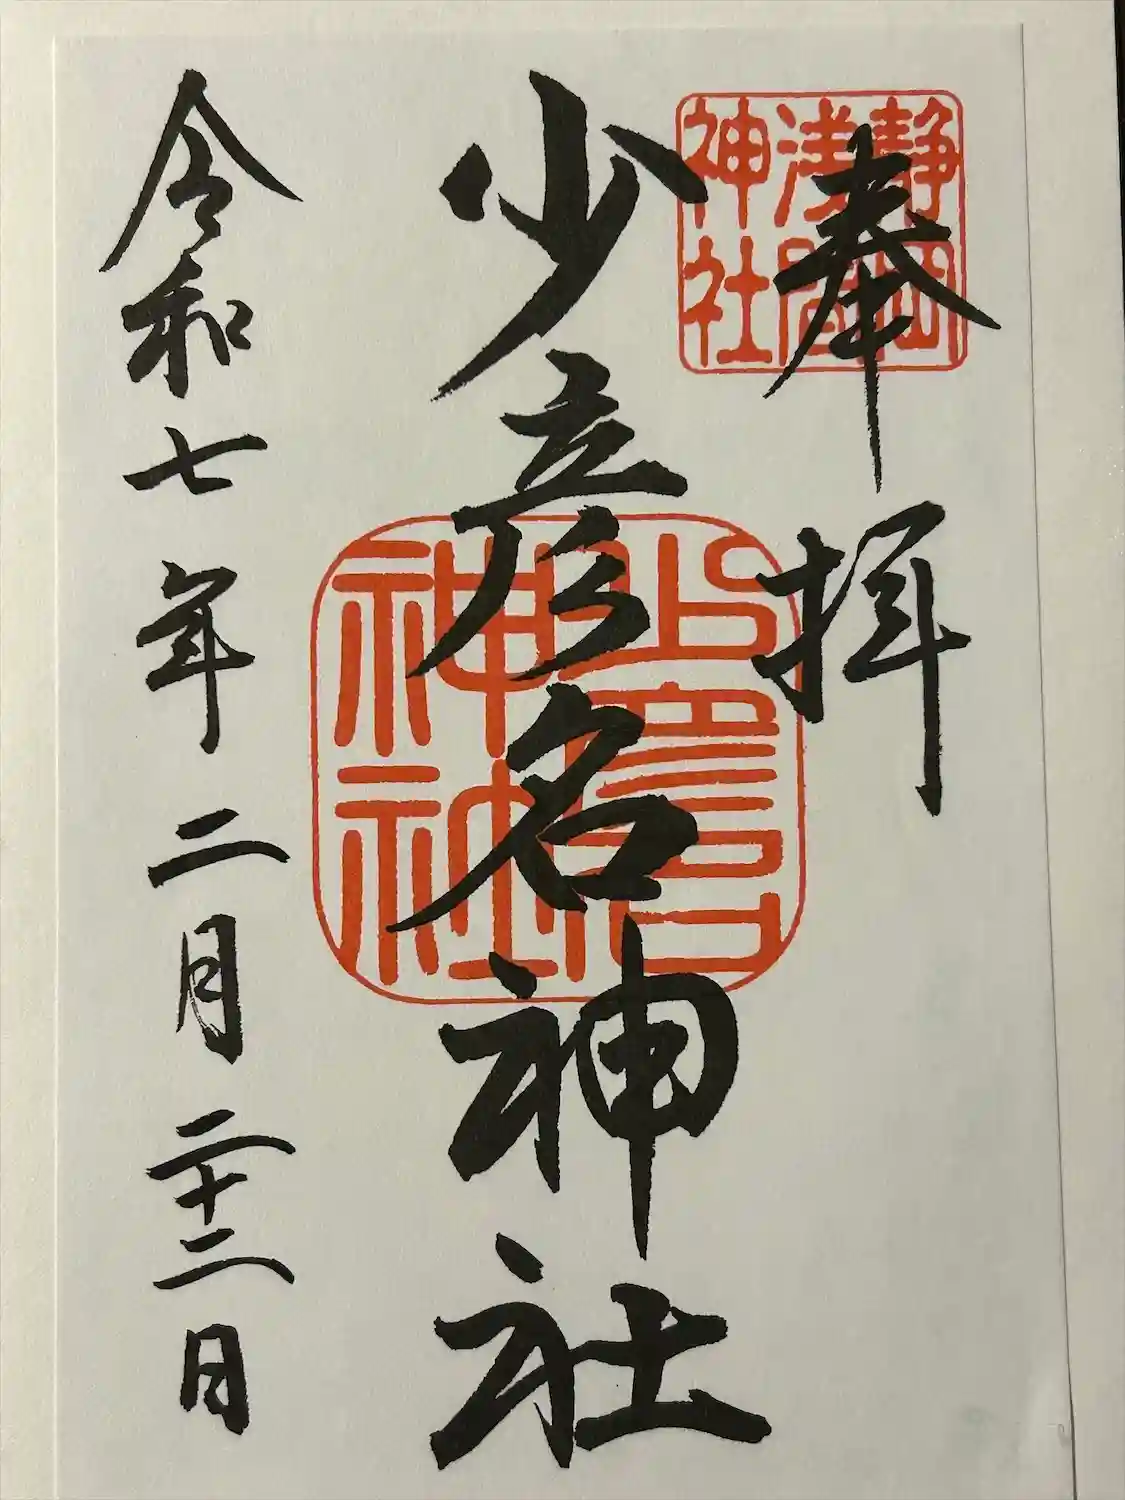 奉拝
静岡
浅間
神社
少彦名神社
神社
令和七年二月二十二日